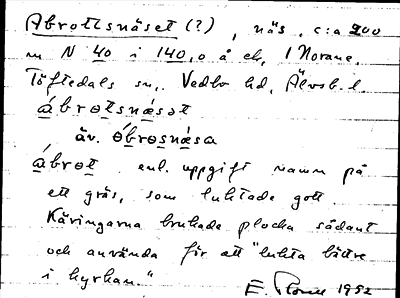 Abrottsnäset (?), näs, c:a 200
m N 40 i 140,0 å ek, 1 Norane,
Töftedals sn, Vedbo hd, Älvsb. l.
ábrotsnæsət
äv. óbrosnæsa
ábrot enl. uppgift namn på
ett gräs, som luktade gott.
Käringarna brukade plocka sådant
och använda för att "lukta bättre
i kyrkan."
E. 1952